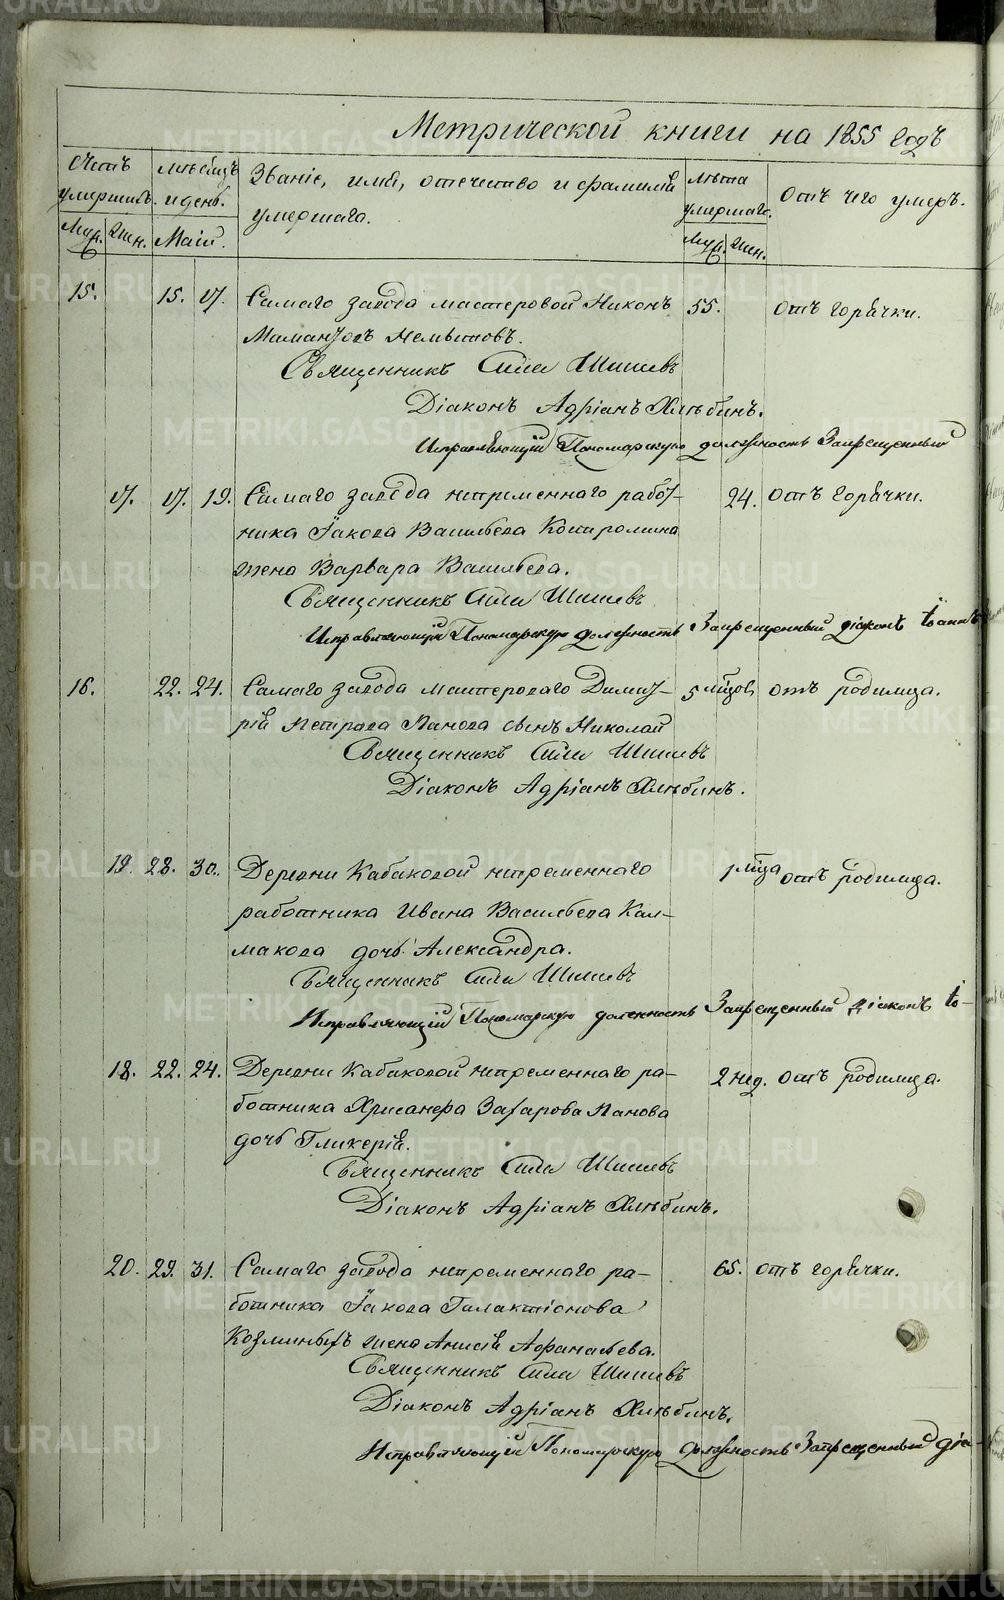 Метрической книги на 1855 годъ
Счетъ умершихъ.
мѣсяцъ и день.
Званіе, имя, отечество и фамилія умершаго.
Лѣта умершаго.
отъ чего умеръ.
Муж. Жен. Маій. Муж. Жен.
15. 15. 17. Самаго завода мастеровой Никонъ 55. отъ горячки.
Священникъ Сила Шишевъ
Діаконъ Адріанъ Хлѣбинъ.
Исправляющій Пономарскую должность Запрещенный
17. 17. 19. Самаго завода непременнаго работ- 24. отъ горячки.
ника Іакова Васильева
жена Варвара Васильева.
Священникъ Сила Шишевъ
Исправляющій Пономарскую должность Запрещенный діаконъ Іоаннъ
16. 22. 24. Самаго завода мастероваго Димит- 5 мѣсяцов. отъ родимца.
рія Петрова Панова сынъ Николай
Священникъ Сила Шишевъ
Діаконъ Адріанъ Хлѣбинъ.
19. 28. 30. Деревни Кабаковой непременнаго 1 мѣсяца отъ родимца.
работника Ивана Васильева Кал-
макова дочь Александра.
Священникъ Сила Шишевъ
Исправляющій Пономарскую должность Запрещенный діаконъ Іо-
18. 22. 24. Деревни Кабаковой непременнаго ра- 2 нед. отъ родимца.
ботника Хрисанфа Захарова Панова
дочь Гликерія.
Священникъ Сила Шишевъ
Діаконъ Адріанъ Хлѣбинъ.
20. 29. 31. Самаго завода непременнаго ра- 65. отъ горячки.
ботника Іакова Галактіонова
Козминыхъ жена Анисія Афанасьева.
Священникъ Сила Шишевъ
Діаконъ Адріанъ Хлѣбинъ.
Исправляющій Пономарскую должность Запрещенный діа-
METRIKI.GASO-URAL.RU